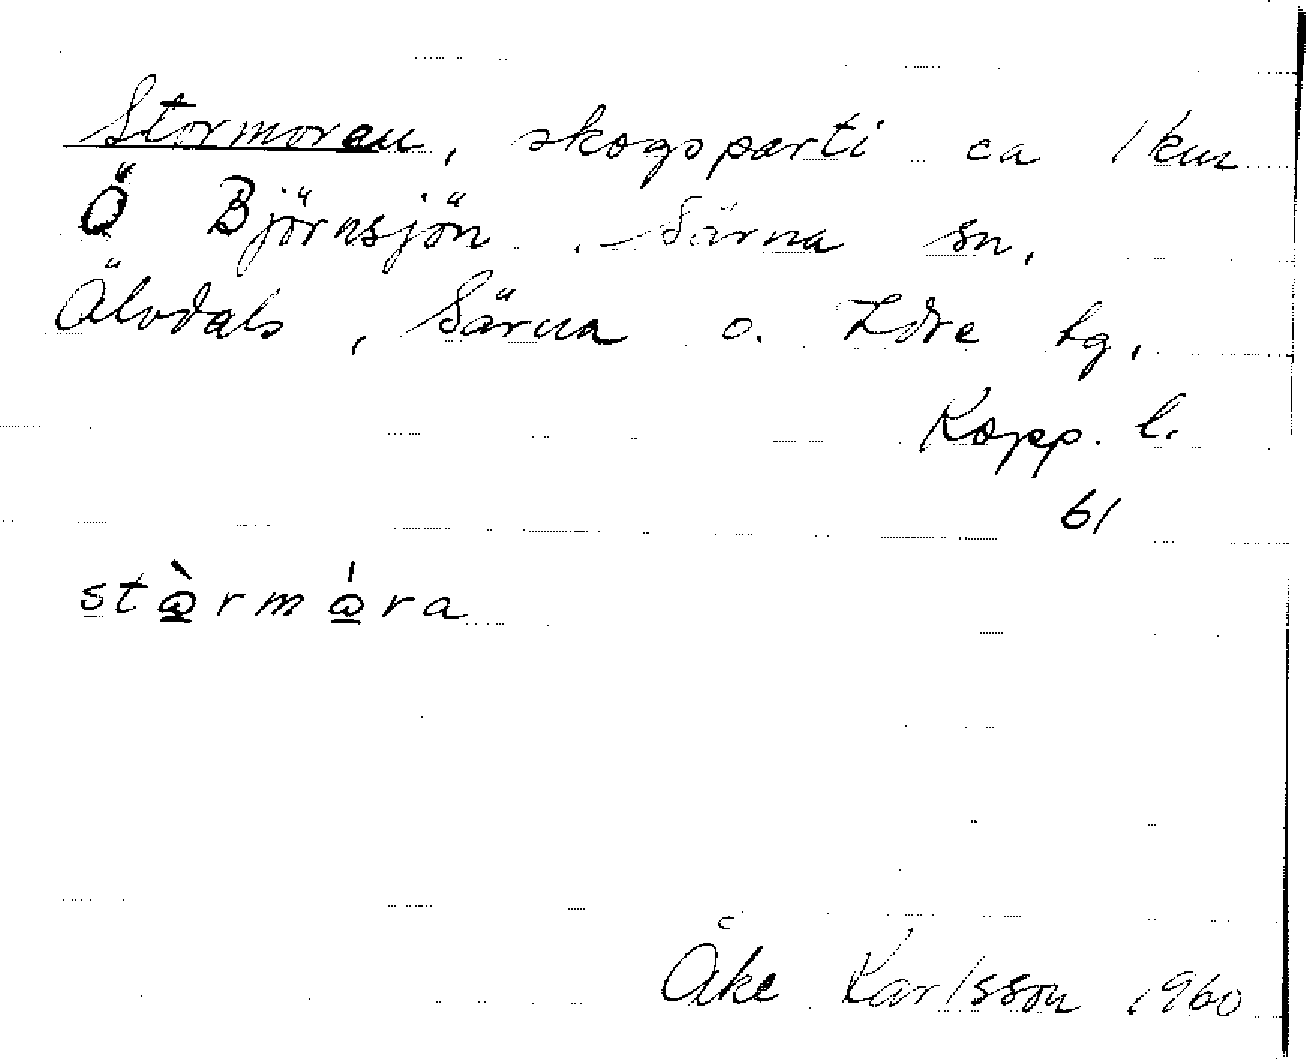 Stormoren, skogsparti ca 1 km
Ö Björnsjön. Särna sn,
Älvdals, Särna o. Idre tg,
Kopp. l.
61
stàrmára
Åke Karlsson 1960